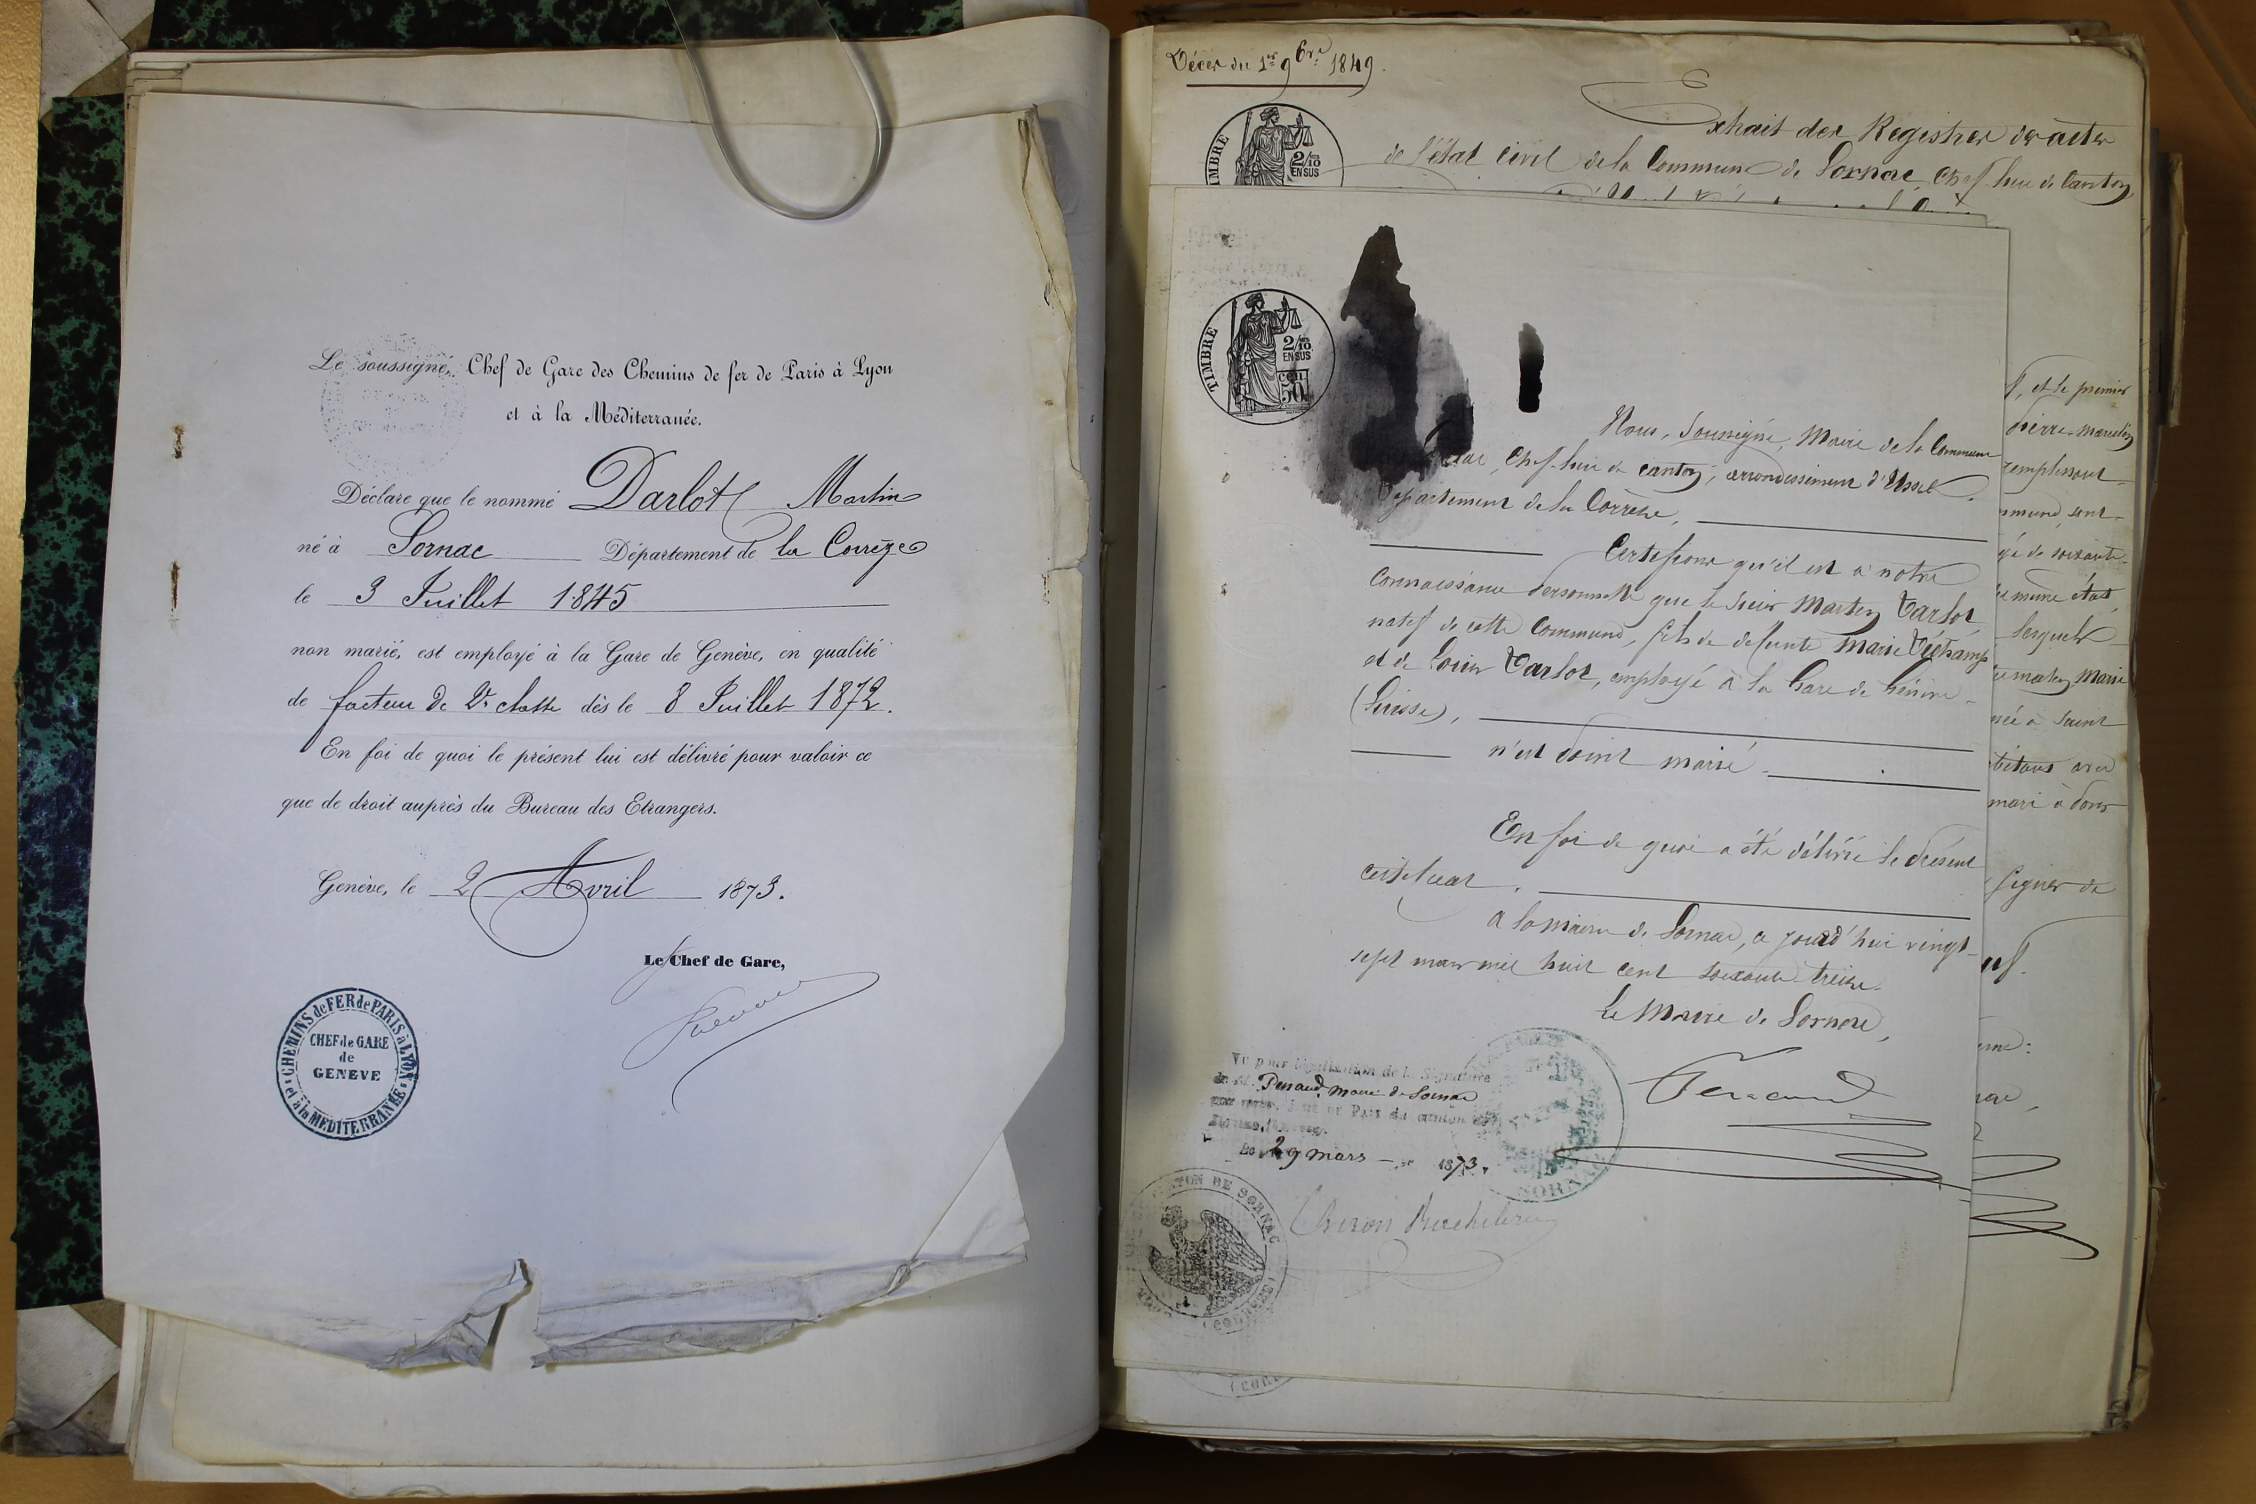 Le soussigné, Chef de Gare des Chemins de fer de Paris à Lyon
et à la Méditerranée.
Déclare que le nommé Darlot Martin
né à Sornac Département de la Corrèze
le 3 Juillet 1845
non marié, est employé à la Gare de Genève, en qualité
de facteur de 2e classe dès le 8 Juillet 1872.
En foi de quoi le présent lui est délivré pour valoir ce
que de droit auprès du Bureau des Etrangers.
Genève, le 2 Avril 1873.
Le Chef de Gare,
CHEMINS de FER de PARIS à LYON
et à la MEDITERRANÉE
CHEF de GARE
de
GENEVE
Décès du 1er 9bre 1849.
Extrait des Registres des actes
de l'état civil de la Commune de Sornac, chef lieu de Canton,
TIMBRE
2/10
EN SUS
TIMBRE
2/10
EN SUS
50
Nous, soussigné, Maire de la Commune
chef-lieu de canton, arrondissement d'Ussel
département de la Corrèze,
Certifions qu'il est à notre
connaissance personnelle que le sieur Martin Darlot
natif de cette commune, fils de defunte Marie Déchamp
et de Louis Darlot, employé à la Gare de Génève
(Suisse),
n'est point marié.
En foi de quoi a été délivré le présent
certificat.
A la mairie de Sornac, ce jourd'hui vingt-
sept mars mil huit cent soixante treize.
Le Maire de Sornac,
Vu pour légalisation de la Signature
de M. maire de Sornac
Paix du canton
Le 29 mars 1873.
SORNAC
CANTON DE SORNAC
(CORREZE)
et le premier
pierre marcelin
remplissant
soixante
même état
lesquels
martin, Marie
née à saint
mari à
signer de